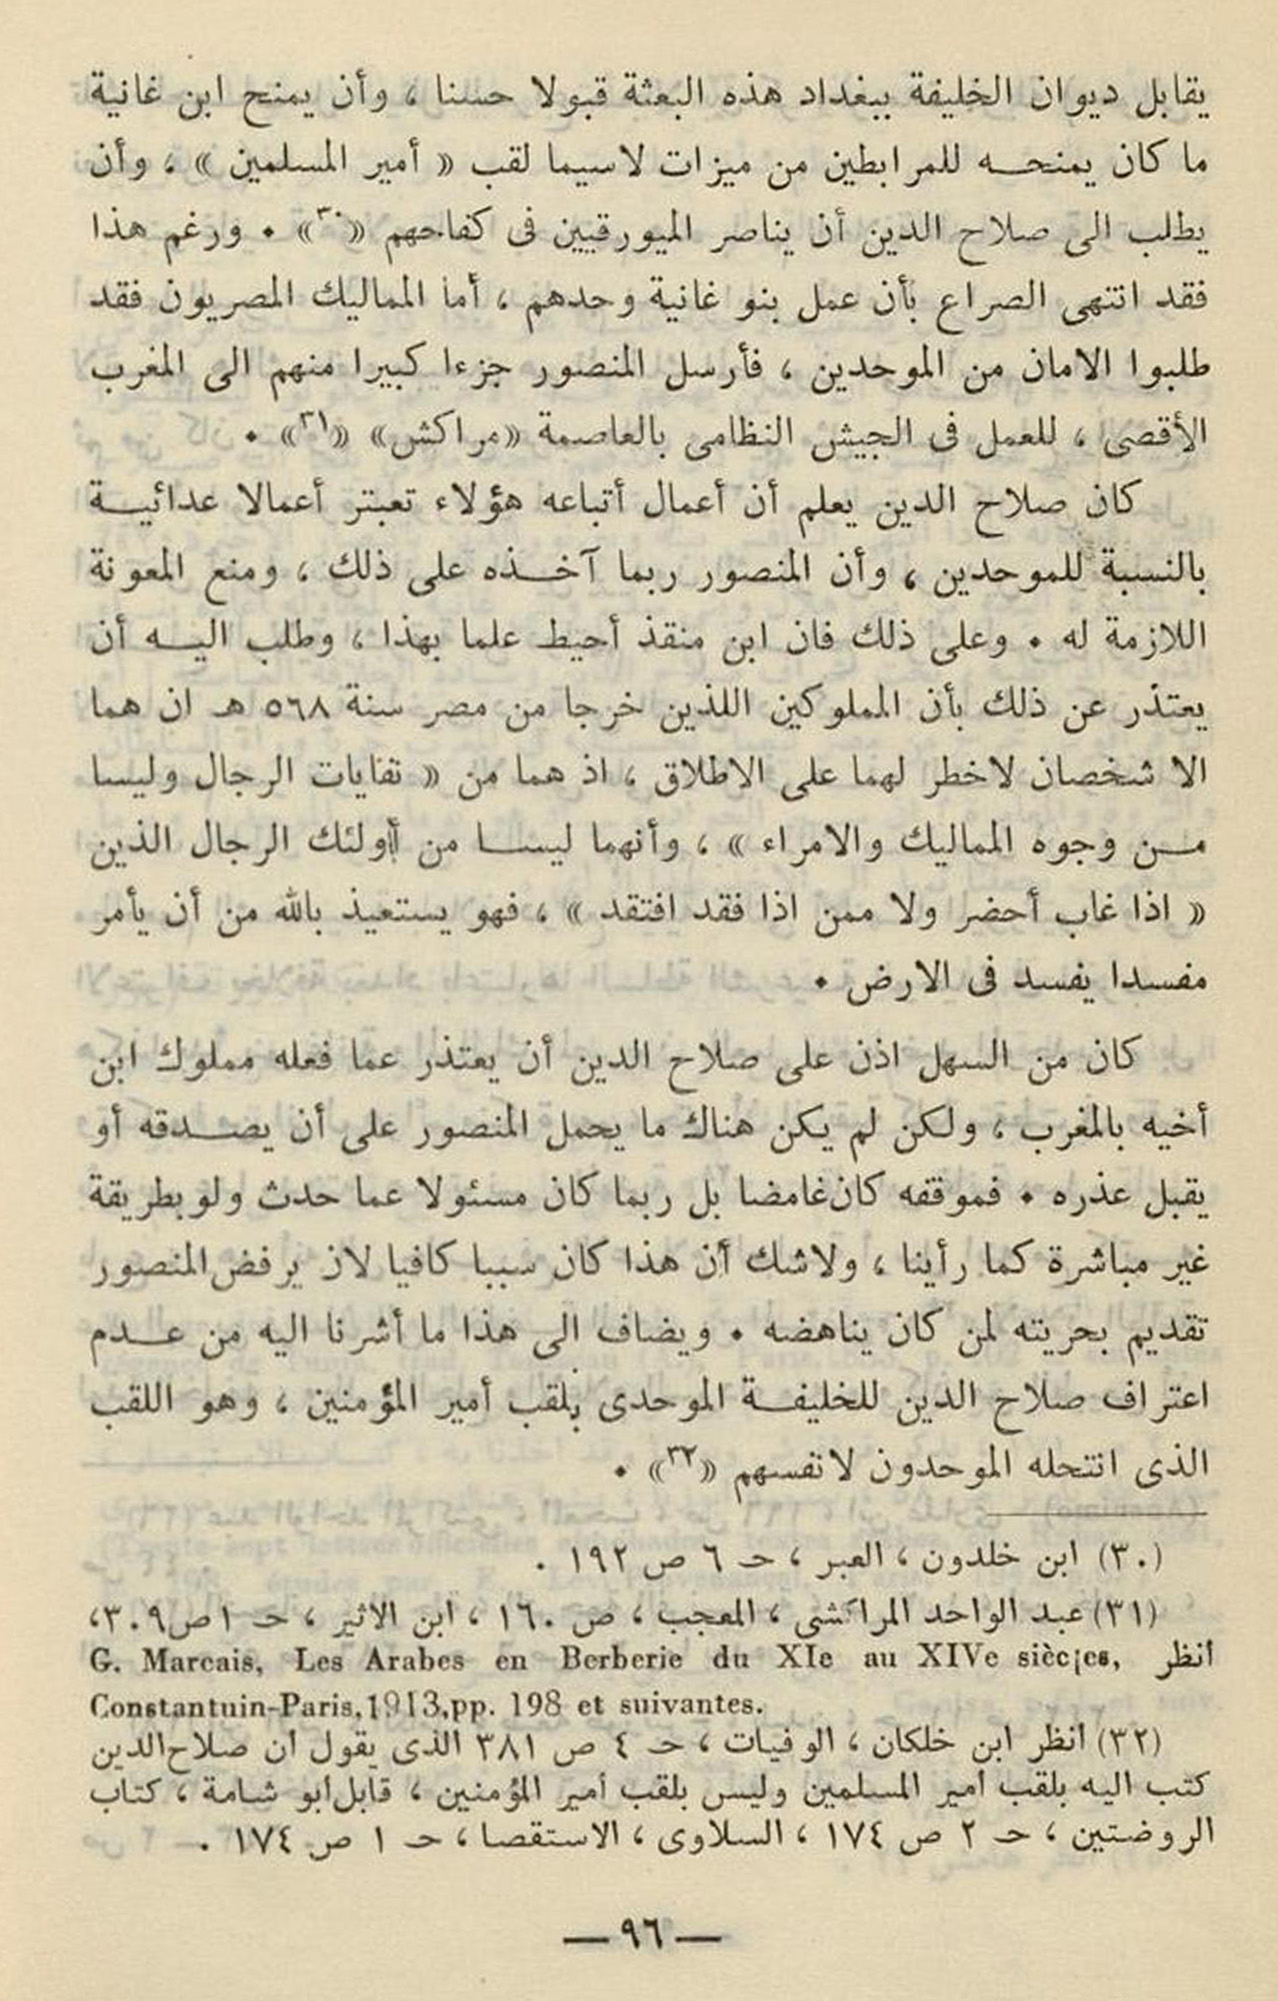 يقابل ديوان الخليفة ببغداد هذه البعثة قبولا حسنا ، وأن يمنح ابن غانية
ما كان يمنحه للمرابطين من ميزات لاسيما لقب « أمير المسلمين » ، وأن
يطلب الى صلاح الدين أن يناصر الميورقيين فى كفاحهم «٣٠» . ورغم هذا
فقد انتهى الصراع بأن عمل بنو غانية وحدهم ، أما المماليك المصريون فقد
طلبوا الامان من الموحدين ، فأرسل المنصور جزءا كبيرا منهم الى المغرب
الأقصى ، للعمل فى الجيش النظامى بالعاصمة «مراكش» «٣١» .
كان صلاح الدين يعلم أن أعمال أتباعه هؤلاء تعبتر أعمالا عدائية
بالنسبة للموحدين ، وأن المنصور ربما آخذه على ذلك ، ومنع المعونة
اللازمة له . وعلى ذلك فان ابن منقذ أحيط علما بهذا ، وطلب اليه أن
يعتذر عن ذلك بأن المملوكين اللذين خرجا من مصر سنة ٥٦٨ هـ ان هما
الا شخصان لاخطر لهما على الاطلاق ، اذ هما من « تفايات الرجال وليسا
من وجوه المماليك والامراء » ، وأنهما ليسا من أولئك الرجال الذين
« اذا غاب أحضر ولا ممن اذا فقد افتقد » ، فهو يستعيذ بالله من أن يأمر
مفسدا يفسد فى الارض .
كان من السهل اذن على صلاح الدين أن يعتذر عما فعله مملوك ابن
أخيه بالمغرب ، ولكن لم يكن هناك ما يحمل المنصور على أن يصدقه أو
يقبل عذره . فموقفه كان غامضا بل ربما كان مسئولا عما حدث ولو بطريقة
غير مباشرة كما رأينا ، ولاشك أن هذا كان سببا كافيا لان يرفض المنصور
تقديم بحريته لمن كان يناهضه . ويضاف الى هذا ما أشرنا اليه من عدم
اعتراف صلاح الدين للخليفة الموحدى بلقب أمير المؤمنين ، وهو اللقب
الذى انتحله الموحدون لانفسهم «٣٢» .
(٣٠) ابن خلدون ، العبر ، حـ ٦ ص ١٩٢ .
(٣١) عبد الواحد المراكشى ، المعجب ، ص ١٦٠ ، ابن الاثير ، حـ ١ ص٣٠٩،
انظر G. Marcais, Les Arabes en Berberie du XIe au XIVe siècles,
Constantuin-Paris,1913,pp. 198 et suivantes.
(٣٢) انظر ابن خلكان ، الوفيات ، حـ ٤ ص ٣٨١ الذى يقول ان صلاح الدين
كتب اليه بلقب أمير المسلمين وليس بلقب أمير المؤمنين ، قابل أبو شامة ، كتاب
الروضتين ، حـ ٢ ص ١٧٤ ، السلاوى ، الاستقصا ، حـ ١ ص ١٧٤ .
— ٩٦ —